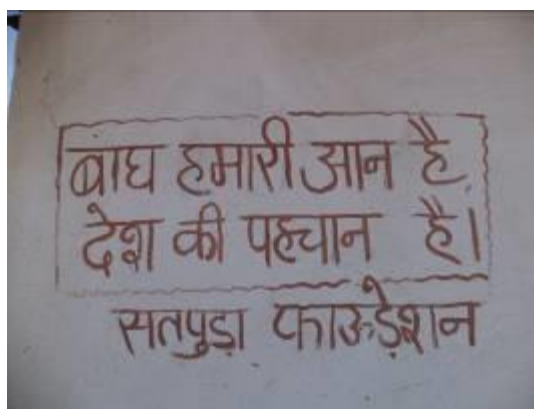 बाघ हमारी आन है,
देश की पहचान है।
सतपुड़ा फाऊडे़शन